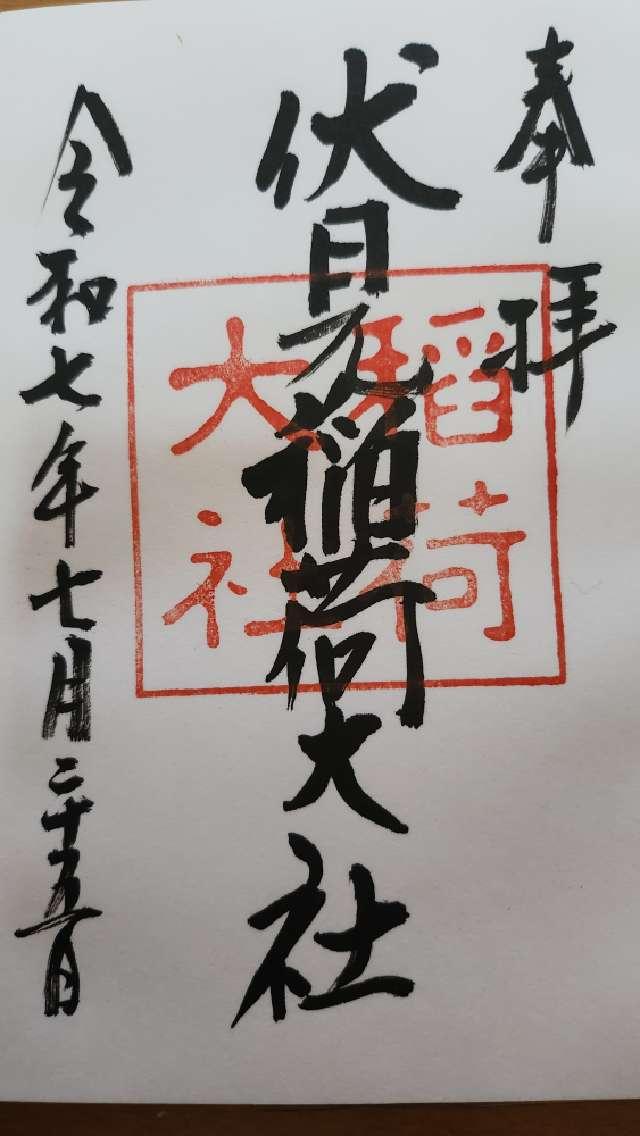 奉拝
伏見稲荷大社
稲荷
大社
令和七年七月二十五日